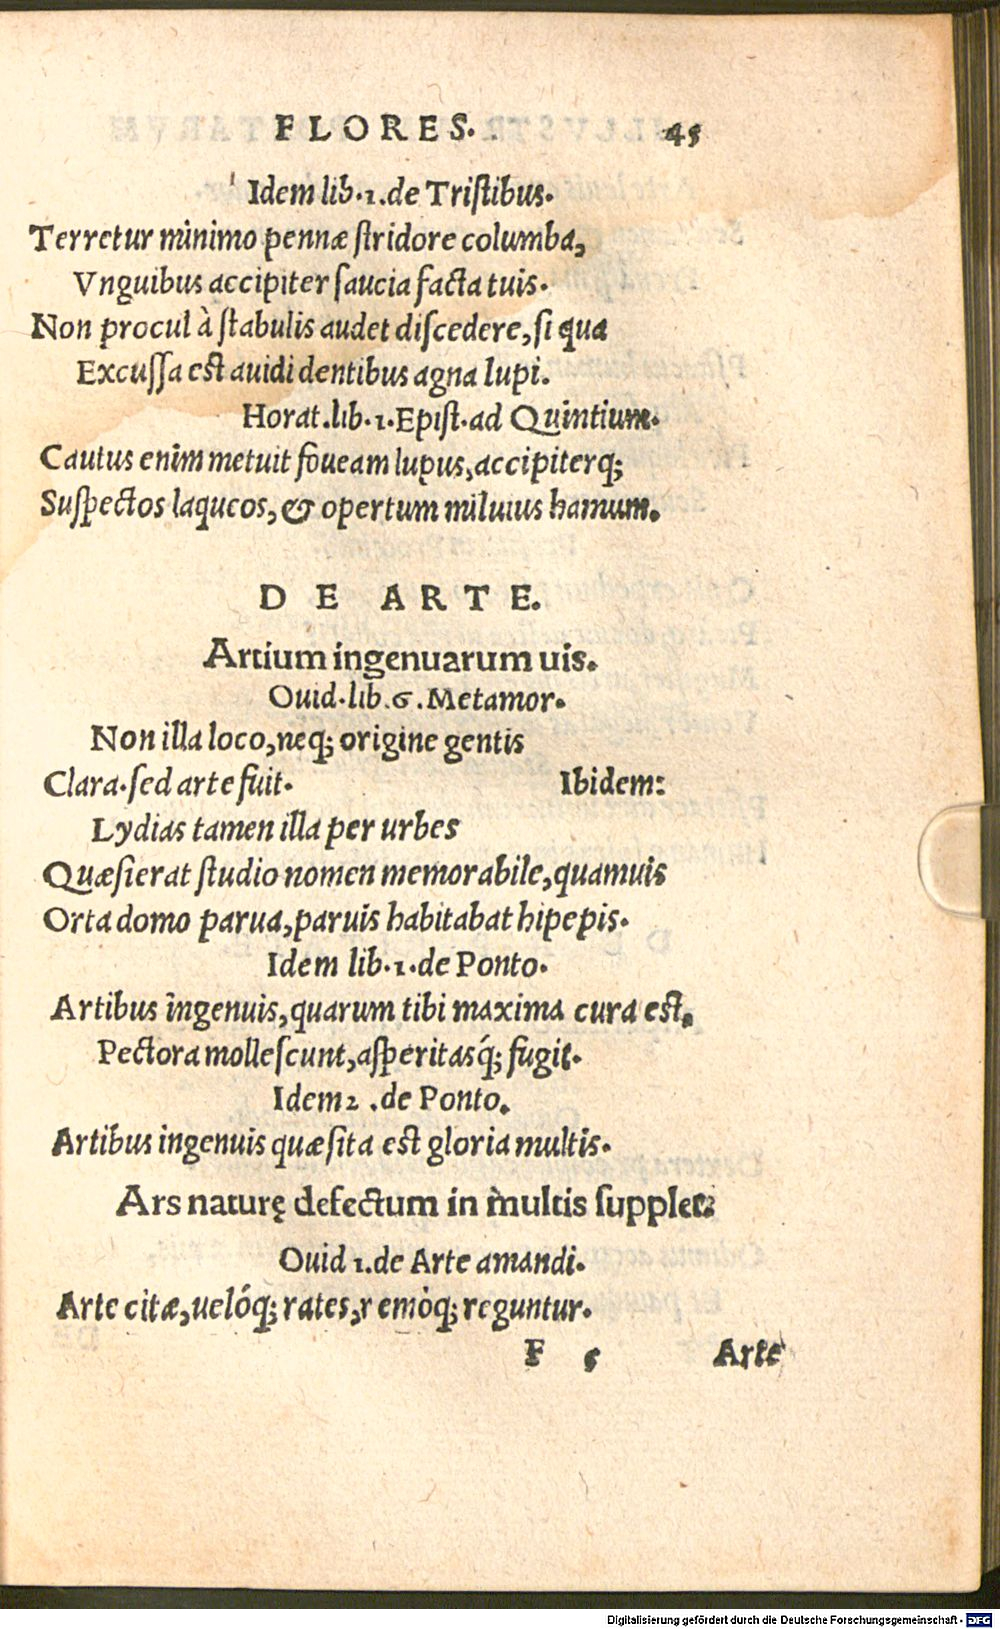 FLORES. 45
Idem lib.1.de Tristibus.
Terretur minimo pennæ stridore columba,
Vnguibus accipiter saucia facta tuis.
Non procul à stabulis audet discedere, si qua
Excussa est auidi dentibus agna lupi.
Horat.lib.1.Epist.ad Quintium.
Cautus enim metuit foueam lupus, accipiterq;
Suspectos laqueos, & opertum miluius hamum.
DE ARTE.
Artium ingenuarum uis.
Ouid.lib.6.Metamor.
Non illa loco, neq; origine gentis
Clara.sed arte fuit. Ibidem:
Lydias tamen illa per urbes
Quæsierat studio nomen memorabile, quamuis
Orta domo parua, paruis habitabat hipepis.
Idem lib.1.de Ponto.
Artibus ingenuis, quarum tibi maxima cura est,
Pectora mollescunt, asperitasq́; fugit.
Idem 2.de Ponto.
Artibus ingenuis quæsita est gloria multis.
Ars naturę defectum in multis supplet.
Ouid 1.de Arte amandi.
Arte citæ, uelóq; rates, remòq; reguntur.
F 5 Arte
Digitalisierung gefördert durch die Deutsche Forschungsgemeinschaft - DFG